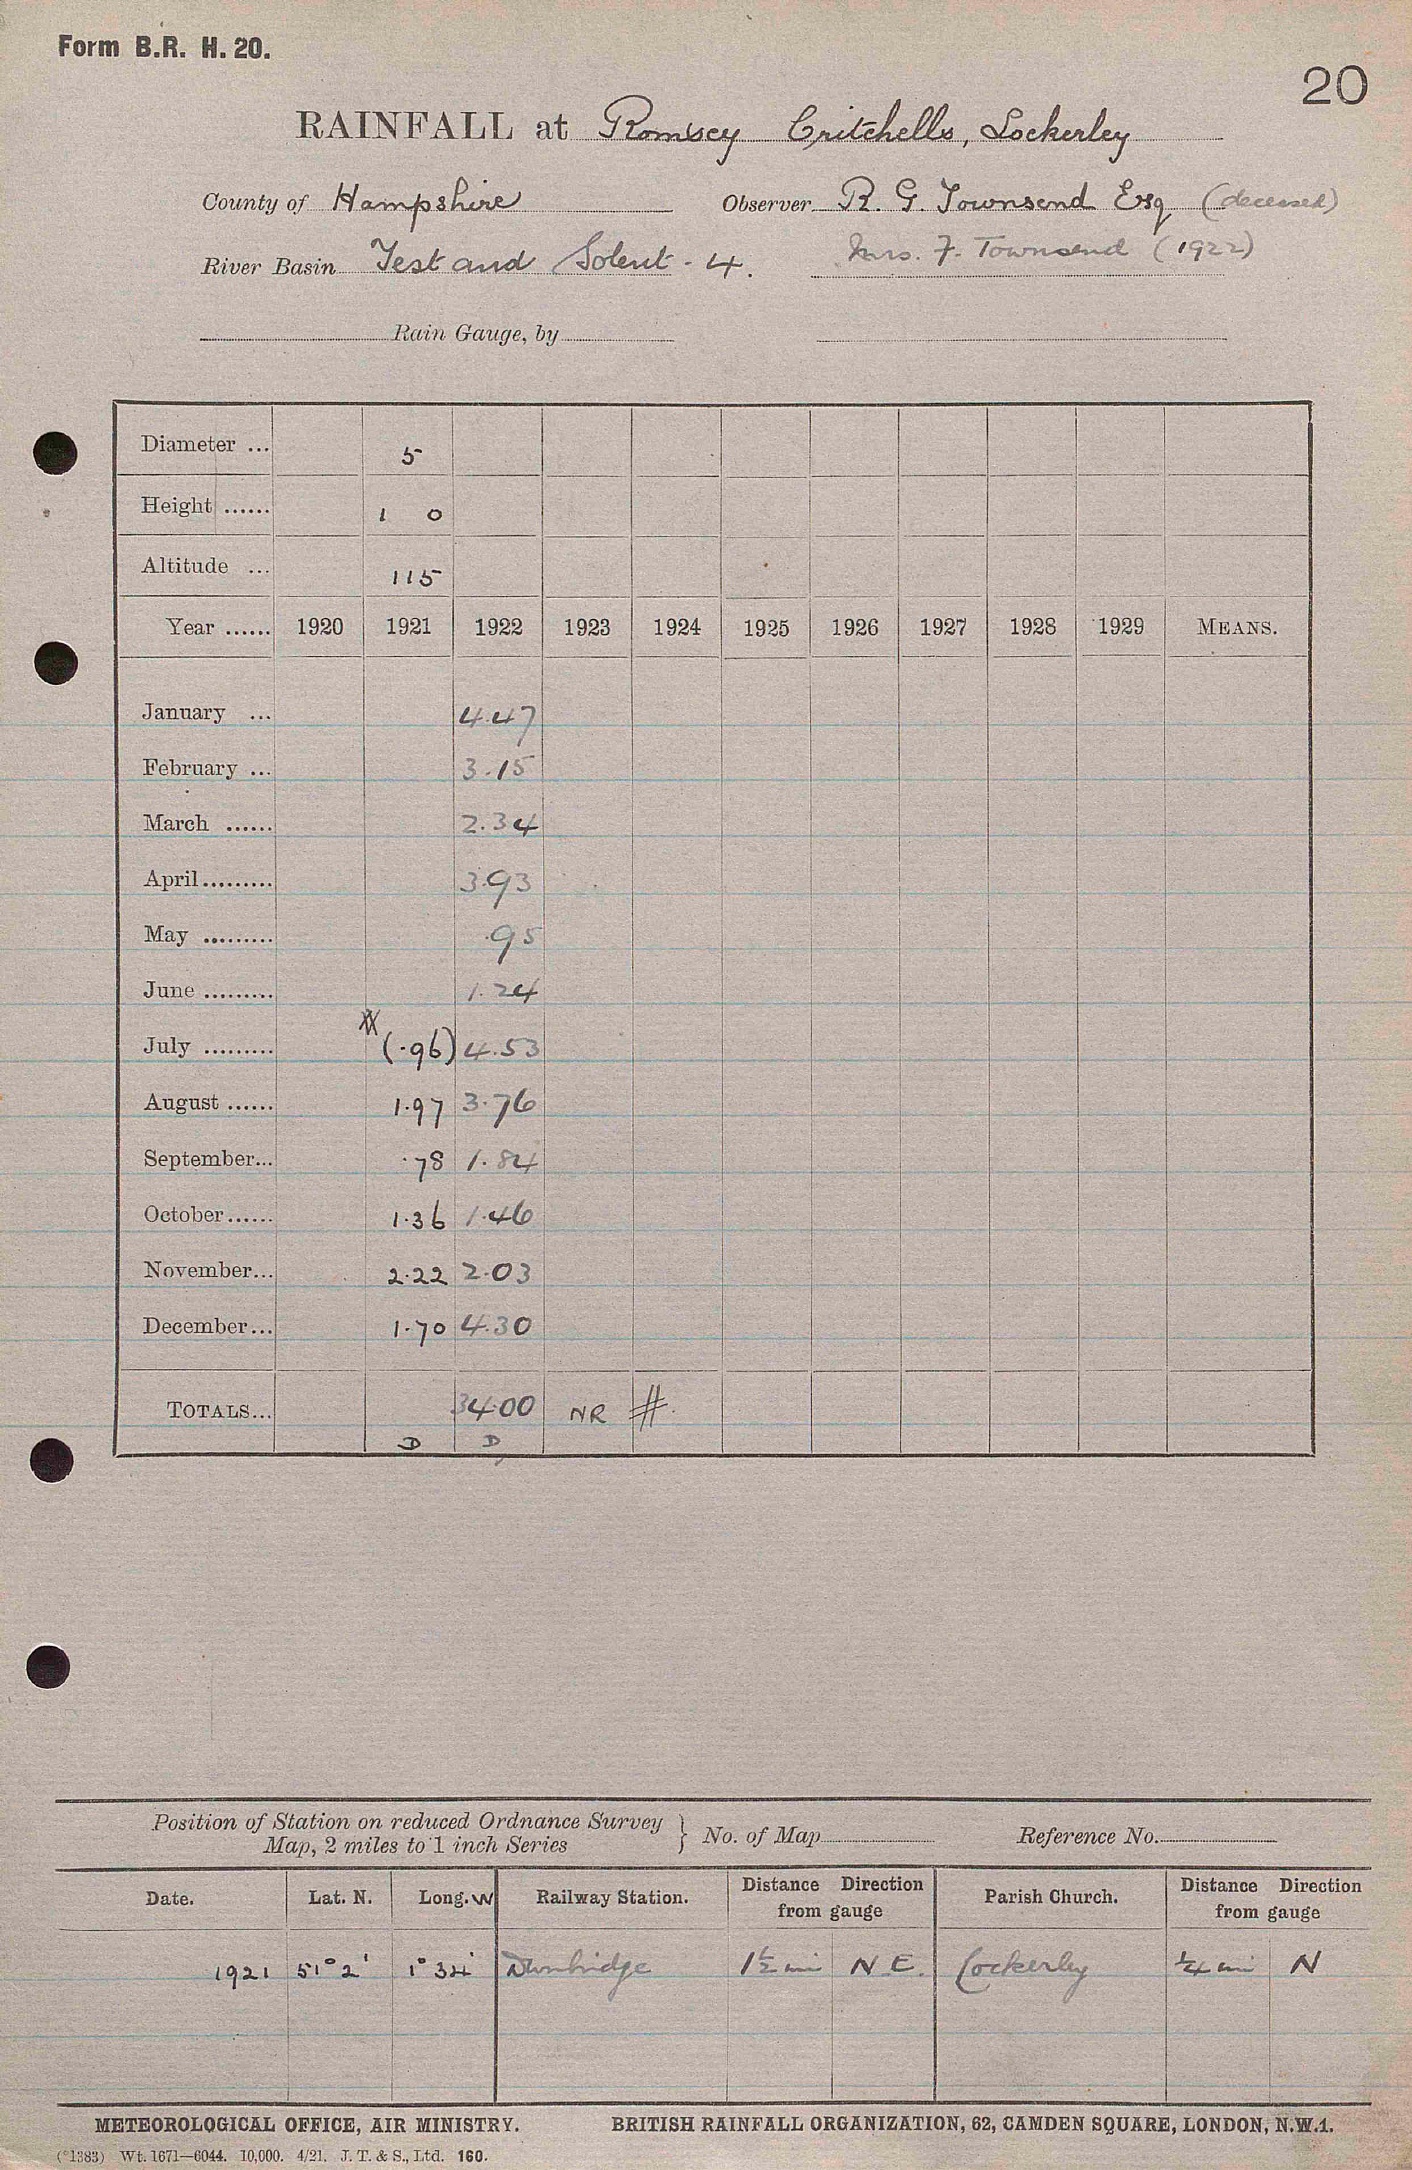 Form B.R. H. 20.
20
RAINFALL at Romsey Critchells, Lockerley
County of Hampshire Observer R. G. Townsend Esq (deceased)
River Basin Test and Solent - 4. Mrs. F. Townsend (1922)
Rain Gauge, by
Diameter ... 5
Height ...... 1 0
Altitude ... 115
Year ...... 1920 1921 1922 1923 1924 1925 1926 1927 1928 1929 MEANS.
January ... 4.47
February ... 3.15
March ...... 2.34
April ......... 3.93
May ......... .95
June ......... 1.24
July ......... (.96) 4.53
August ...... 1.97 3.76
September... .78 1.84
October...... 1.36 1.46
November... 2.22 2.03
December... 1.70 4.30
TOTALS... 34.00 NR #
D D
Position of Station on reduced Ordnance Survey
Map, 2 miles to 1 inch Series } No. of Map Reference No.
Date. Lat. N. Long. W Railway Station. Distance Direction from gauge Parish Church. Distance Direction from gauge
1921 51° 2' 1° 34' Dunbridge 1½ mi N.E. Lockerley ¼ mi N
METEOROLOGICAL OFFICE, AIR MINISTRY. BRITISH RAINFALL ORGANIZATION, 62, CAMDEN SQUARE, LONDON, N.W.1.
(*1383) Wt. 1671—6044. 10,000. 4/21. J. T. & S., Ltd. 160.